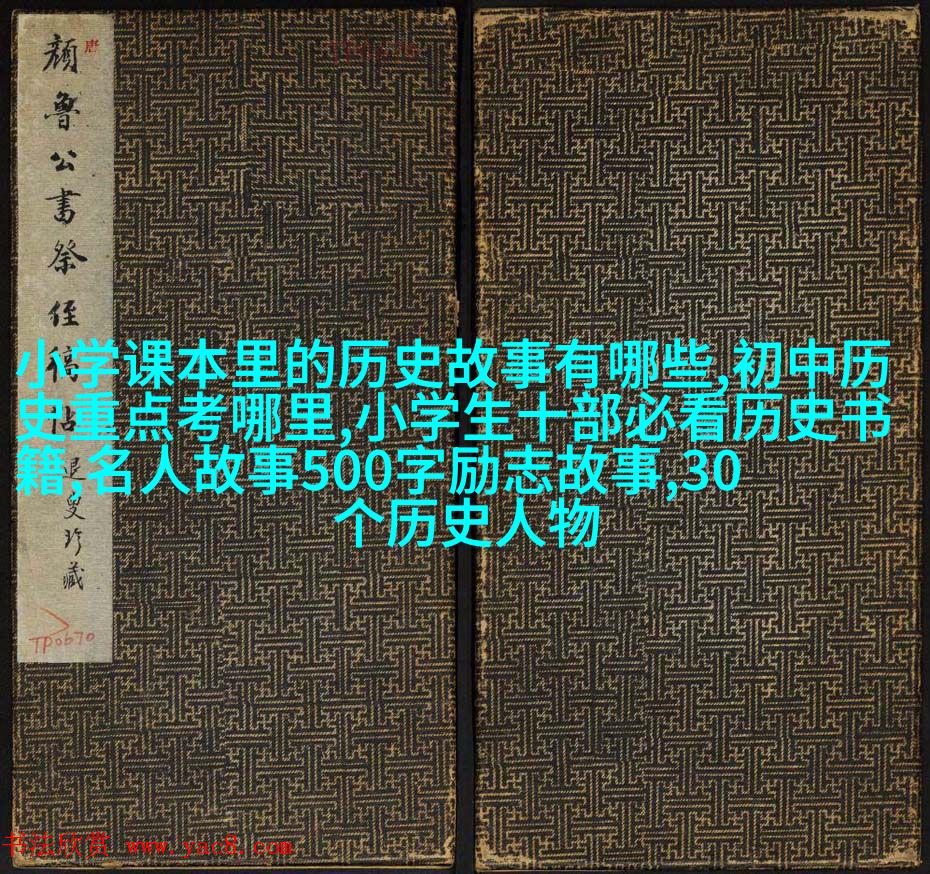 唐
颜鲁公书祭侄稿帖
退叟珍藏
TP0670
小学课本里的历史故事有哪些,初中历
史重点考哪里,小学生十部必看历史书
籍,名人故事500字励志故事,30
个历史人物
书法欣赏 www.yac8.com